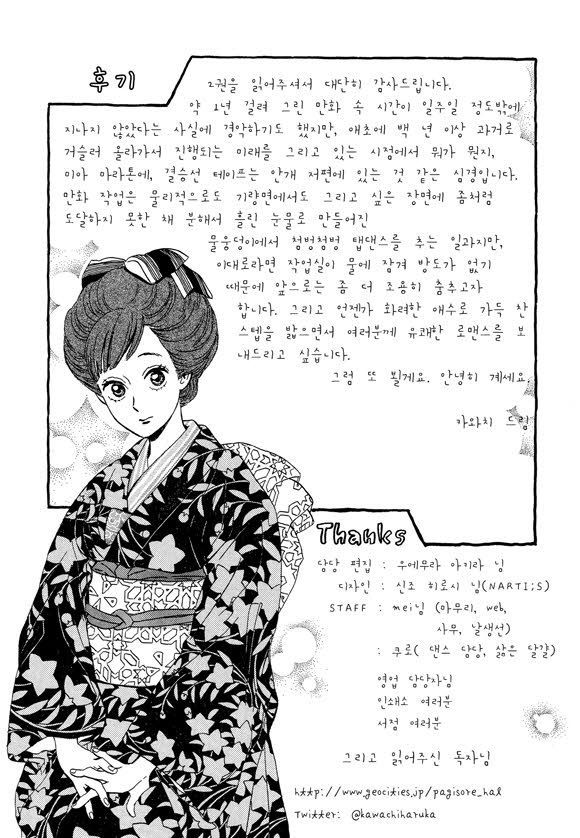 후기
2권을 읽어주셔서 대단히 감사드립니다.
약 1년 걸려 그린 만화 속 시간이 일주일 정도밖에
지나지 않았다는 사실에 경악하기도 했지만, 애초에 백 년 이상 과거로
거슬러 올라가서 진행되는 미래를 그리고 있는 시점에서 뭐가 뭔지,
미아 마라톤에, 결승선 테이프는 안개 저편에 있는 것 같은 심경입니다.
만화 작업은 물리적으로도 기량면에서도 그리고 싶은 장면에 좀처럼
도달하지 못한 채 분해서 흘린 눈물로 만들어진
물웅덩이에서 첨벙첨벙 탭댄스를 추는 일과지만,
이대로라면 작업실이 물에 잠겨 방도가 없기
때문에 앞으로는 좀 더 조용히 춤추고자
합니다. 그리고 언젠가 화려한 애수로 가득 찬
스텝을 밟으면서 여러분께 유쾌한 로맨스를 보
내드리고 싶습니다.
그럼 또 뵐게요. 안녕히 계세요.
카와치 드림
Thanks
담당 편집 : 우에무라 아키라 님
디자인 : 신조 히로시 님(NARTI;S)
STAFF : mei님 (아무리, web,
사무, 날생선)
: 쿠로( 댄스 담당, 삶은 달걀)
영업 담당자님
인쇄소 여러분
서점 여러분
그리고 읽어주신 독자님
http://www.geocities.jp/pagisore_hal
Twitter: @kawachiharuka